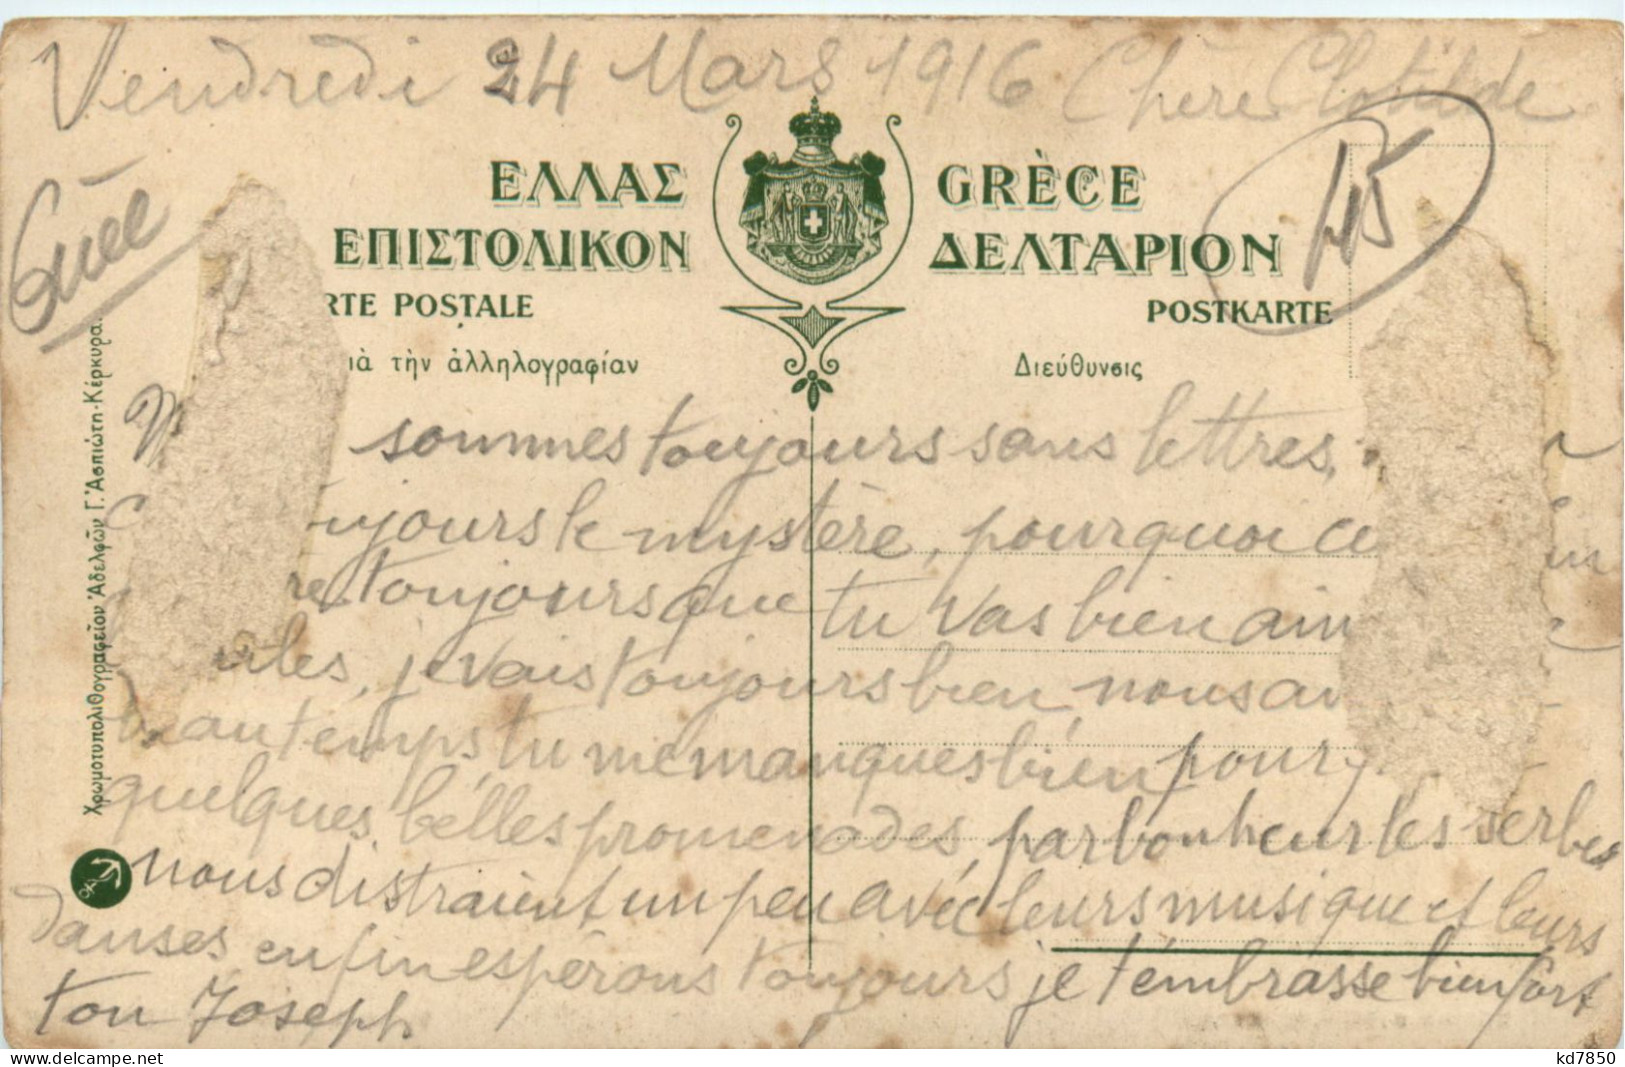 Vendredi 24 Mars 1916 Chère Clotilde
45
ΕΛΛΑΣ GRÈCE
ΕΠΙΣΤΟΛΙΚΟΝ ΔΕΛΤΑΡΙΟΝ
RTE POSTALE POSTKARTE
ιὰ τὴν ἀλληλογραφίαν Διεύθυνσις
sommes toujours sans lettres,
ujours le mystère, pourquoi ce
re toujours que tu vas bien ain
je vais toujours bien, nous av
beau temps tu me manques bien pour
quelques belles promenades, par bonheur les serbes
nous distraient un peu avec leurs musique et leurs
danses enfin espérons toujours je t'embrasse bien fort
ton Joseph
Χρωμοτυπολιθογραφεῖον Ἀδελφῶν Γ. Ἀσπιώτη-Κέρκυρα.
kd7850